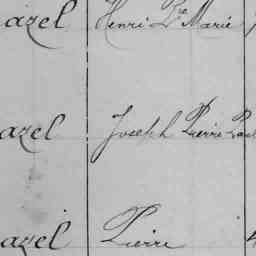 azel Henri Pre Marie
azel Joseph Pierre Paul
azel Pierre